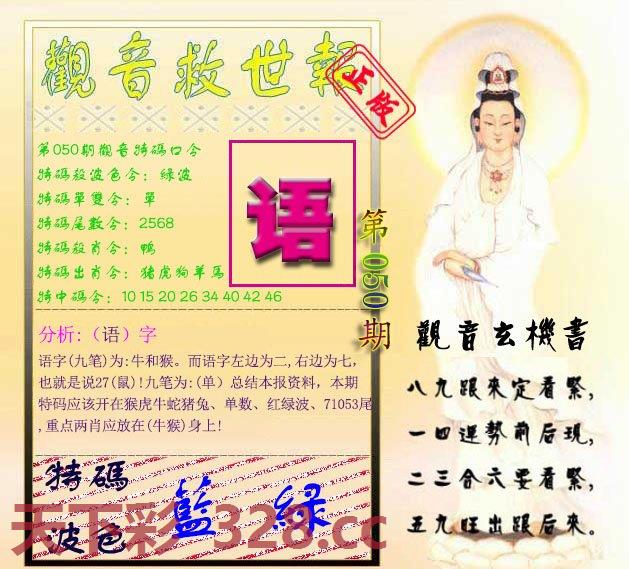 觀音救世報
正版
第050期觀音特碼口令
特碼殺波色令：綠波
特碼單雙令：單
特碼尾數令：2568
特碼殺肖令：鴨
特碼出肖令：猪虎狗羊馬
特中碼令：10 15 20 26 34 40 42 46
语
第050期
分析:（语）字
语字(九笔)为:牛和猴。而语字左边为二,右边为七,
也就是说27(鼠)!九笔为:(单）总结本报资料，本期
特码应该开在猴虎牛蛇猪兔、单数、红绿波、71053尾
,重点两肖应放在(牛猴)身上!
特碼
波色
藍 綠
觀音玄機書
八九跟來定看緊,
一四運勢前后現,
二三合六要看緊,
五九旺出跟后來。
天下彩 328.cc